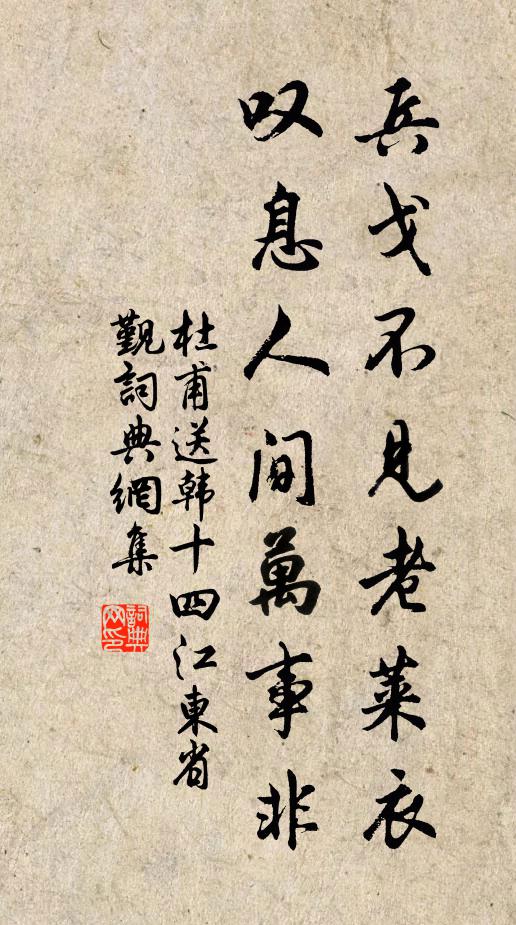 兵戈不见老莱衣
叹息人间萬事非
杜甫送韩十四江東省
觐詞典網集
詞典
网印